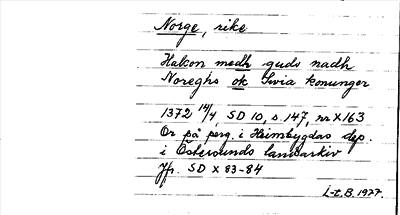 Norge, rike
Hakon medh guds nadh
Noreghs ok Swia konunger
1372 14/4 SD 10, s. 147, nr X 163
Or på perg. i Heimbygdas dep.
i Östersunds landsarkiv
Jfr. SD X 83-84
L-t, B. 1977.